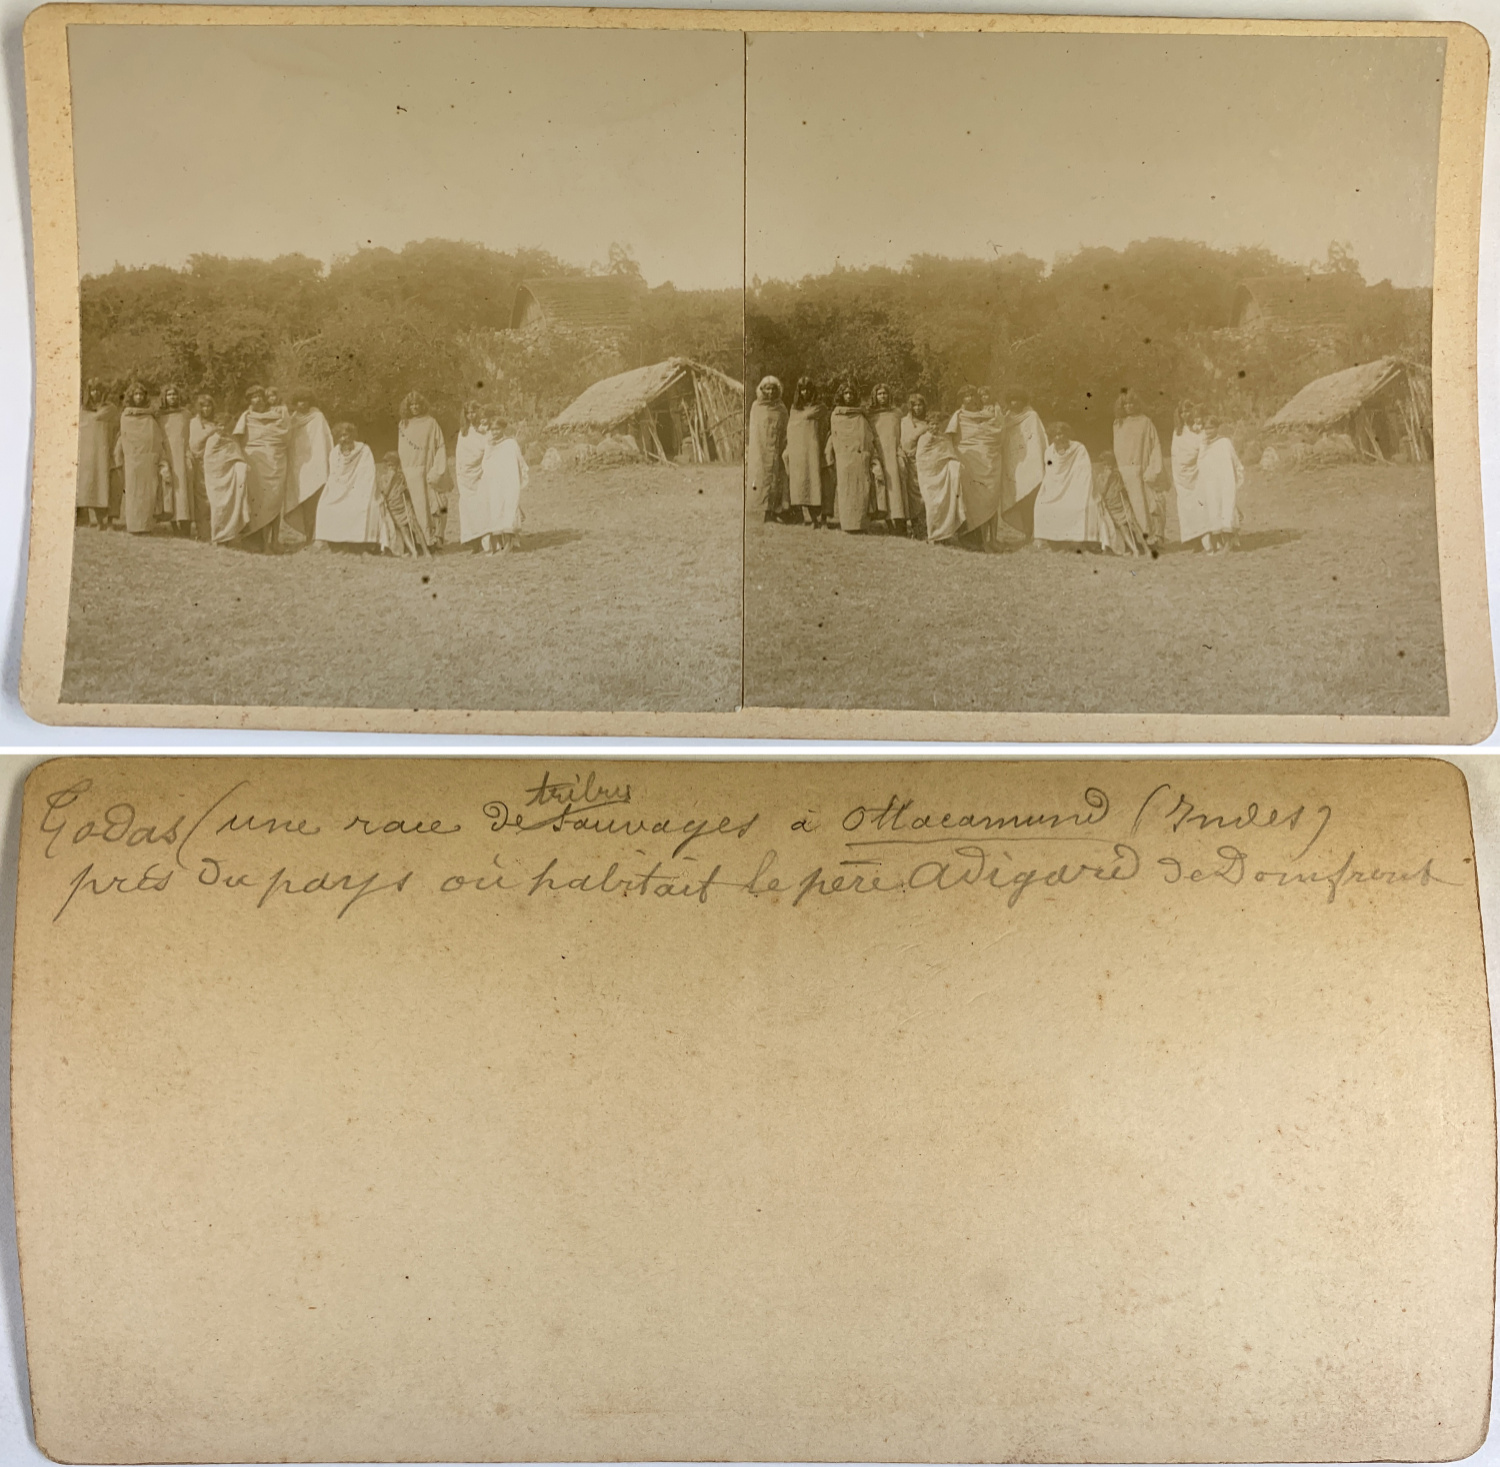 Todas (une race de tribus sauvages à Ottacamund (Indes)
près du pays où habitait le père Adigard de Domfront